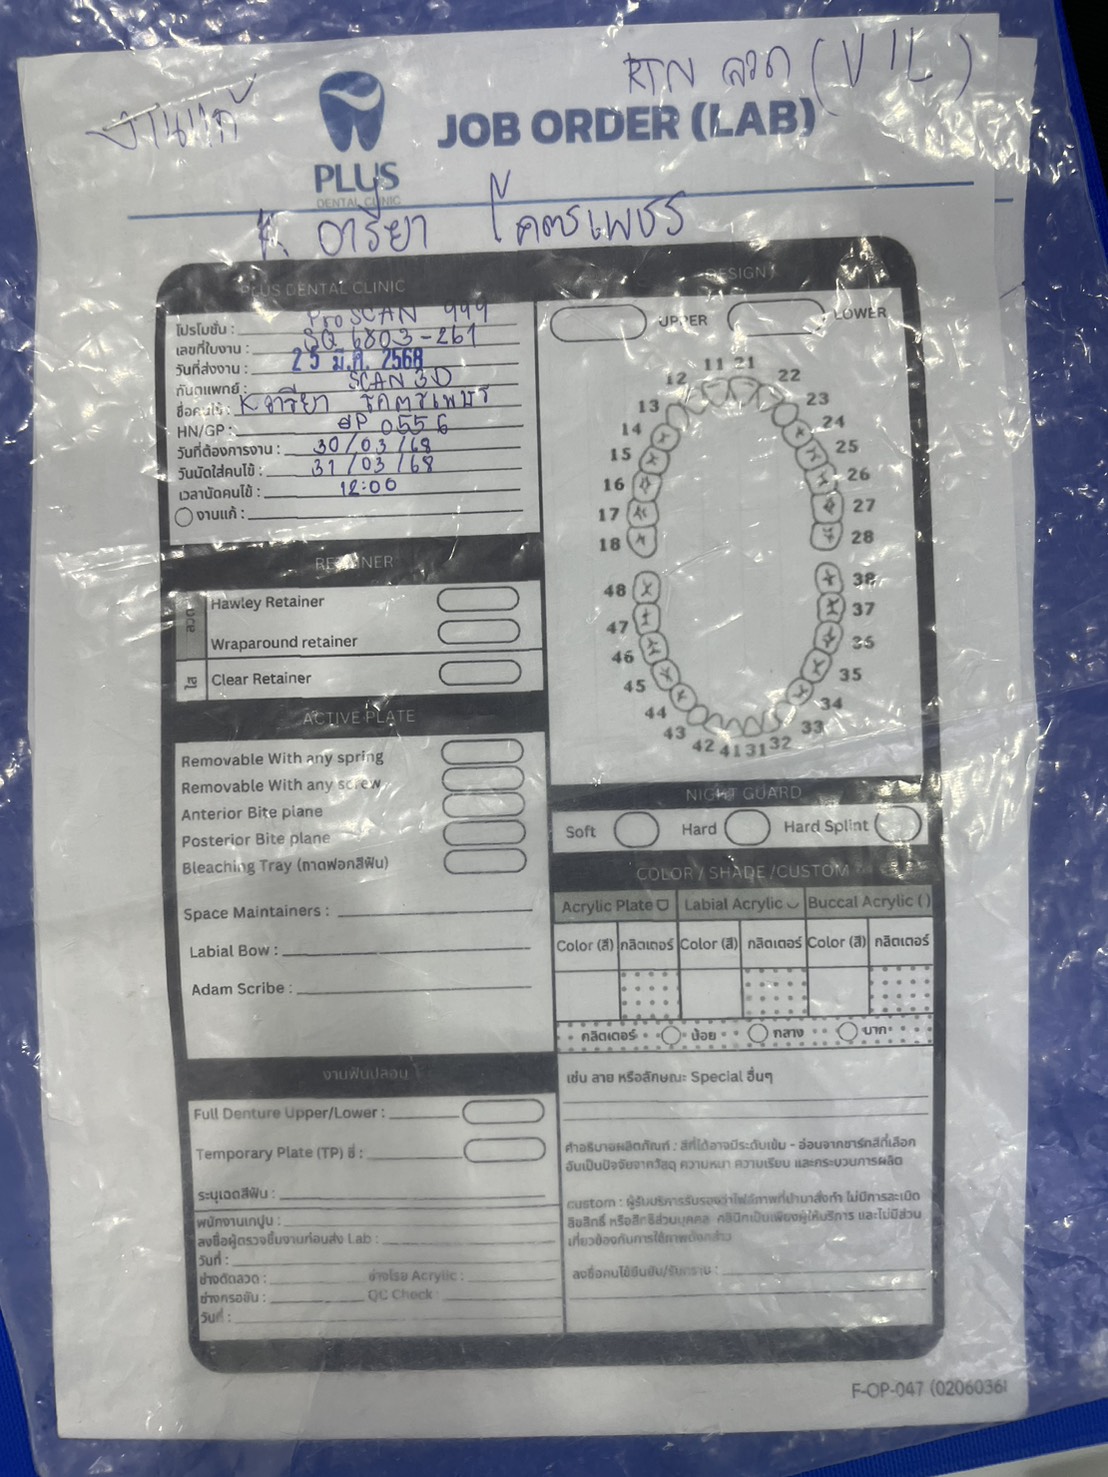 งานแก้
RTN ลวด (U/L)
JOB ORDER (LAB)
PLUS
DENTAL CLINIC
K. อารียา โคตรเพชร
PLUS DENTAL CLINIC
โปรโมชั่น : ProSCAN 999
เลขที่ใบงาน : SQ 6803-261
วันที่ส่งงาน : 25 มี.ค. 2568
ทันตแพทย์ : SCAN 3D
ชื่อคนไข้ : K อารียา โคตรเพชร
HN/GP : GP 0556
วันที่ต้องการงาน : 30/03/68
วันนัดใส่คนไข้ : 31/03/68
เวลานัดคนไข้ : 12:00
งานแก้ :
RETAINER
ลวด
Hawley Retainer
Wraparound retainer
ใส
Clear Retainer
ACTIVE PLATE
Removable With any spring
Removable With any screw
Anterior Bite plane
Posterior Bite plane
Bleaching Tray (ถาดฟอกสีฟัน)
Space Maintainers :
Labial Bow :
Adam Scribe :
งานฟันปลอม
Full Denture Upper/Lower :
Temporary Plate (TP) ซี่ :
ระบุเฉดสีฟัน :
พนักงานเทปูน :
ลงชื่อผู้ตรวจชิ้นงานก่อนส่ง Lab :
วันที่ :
ช่างดัดลวด : ช่างโรย Acrylic :
ช่างกรอขัด : QC Check :
วันที่ :
DESIGN
UPPER LOWER
11 21
12 22
13 23
14 24
15 25
16 26
17 27
18 28
48 38
47 37
46 36
45 35
44 34
43 33
42 41 31 32
NIGHT GUARD
Soft Hard Hard Splint
COLOR / SHADE /CUSTOM
Acrylic Plate Labial Acrylic Buccal Acrylic ( )
Color (สี) กลิตเตอร์ Color (สี) กลิตเตอร์ Color (สี) กลิตเตอร์
กลิตเตอร์ น้อย กลาง มาก
เช่น ลาย หรือลักษณะ Special อื่นๆ
คำอธิบายผลิตภัณฑ์ : สีที่ได้อาจมีระดับเข้ม - อ่อนจากชาร์ทสีที่เลือก
อันเป็นปัจจัยจากวัสดุ ความหนา ความเรียบ และกระบวนการผลิต
custom : ผู้รับบริการรับรองว่าไฟล์ภาพที่นำมาสั่งทำ ไม่มีการละเมิด
ลิขสิทธิ์ หรือสิทธิส่วนบุคคล คลินิกเป็นเพียงผู้ให้บริการ และไม่มีส่วน
เกี่ยวข้องกับการใช้ภาพดังกล่าว
ลงชื่อคนไข้ยืนยัน/รับทราบ :
F-OP-047 (0206036